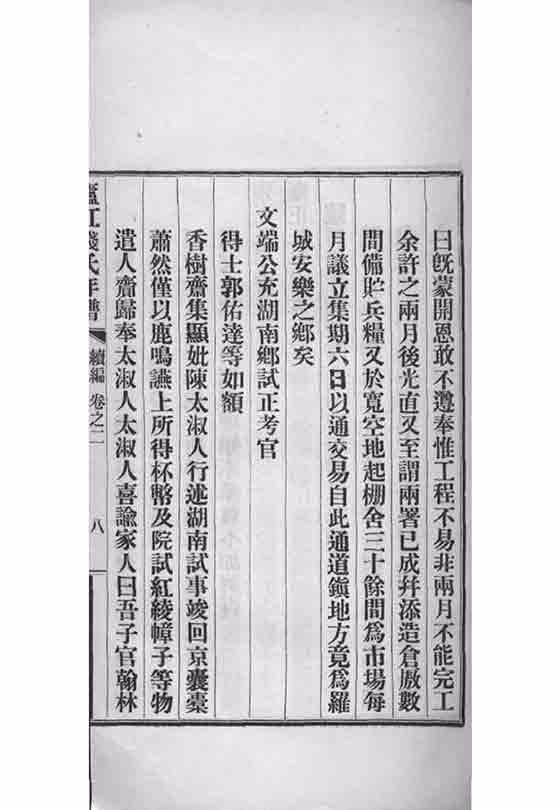 曰旣蒙開恩敢不遵奉惟工程不易非兩月不能完工
余許之兩月後光直又至謂兩署已成幷添造倉厫數
間備貯兵糧又於寬空地起棚舍三十餘間爲市場每
月議立集期六日以通交易自此通道鎭地方竟爲羅
城安樂之鄕矣
文端公充湖南鄕試正考官
得士郭佑逵等如額
香樹齋集顯妣陳太淑人行述湖南試事竣回京囊橐
蕭然僅以鹿鳴讌上所得杯幣及院試紅綾幛子等物
遣人齎歸奉太淑人太淑人喜諭家人曰吾子官翰林
廬江錢氏年譜 續編 卷之二 八